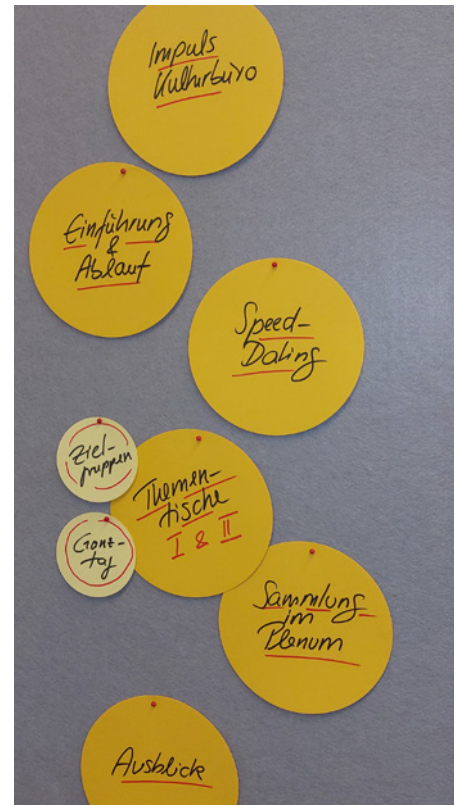 Impuls
Kulturbüro
Einführung
&
Ablauf
Speed-
Dating
Ziel-
gruppen
Themen-
tische
I & II
Ganz-
tag
Sammlung
im
Plenum
Ausblick